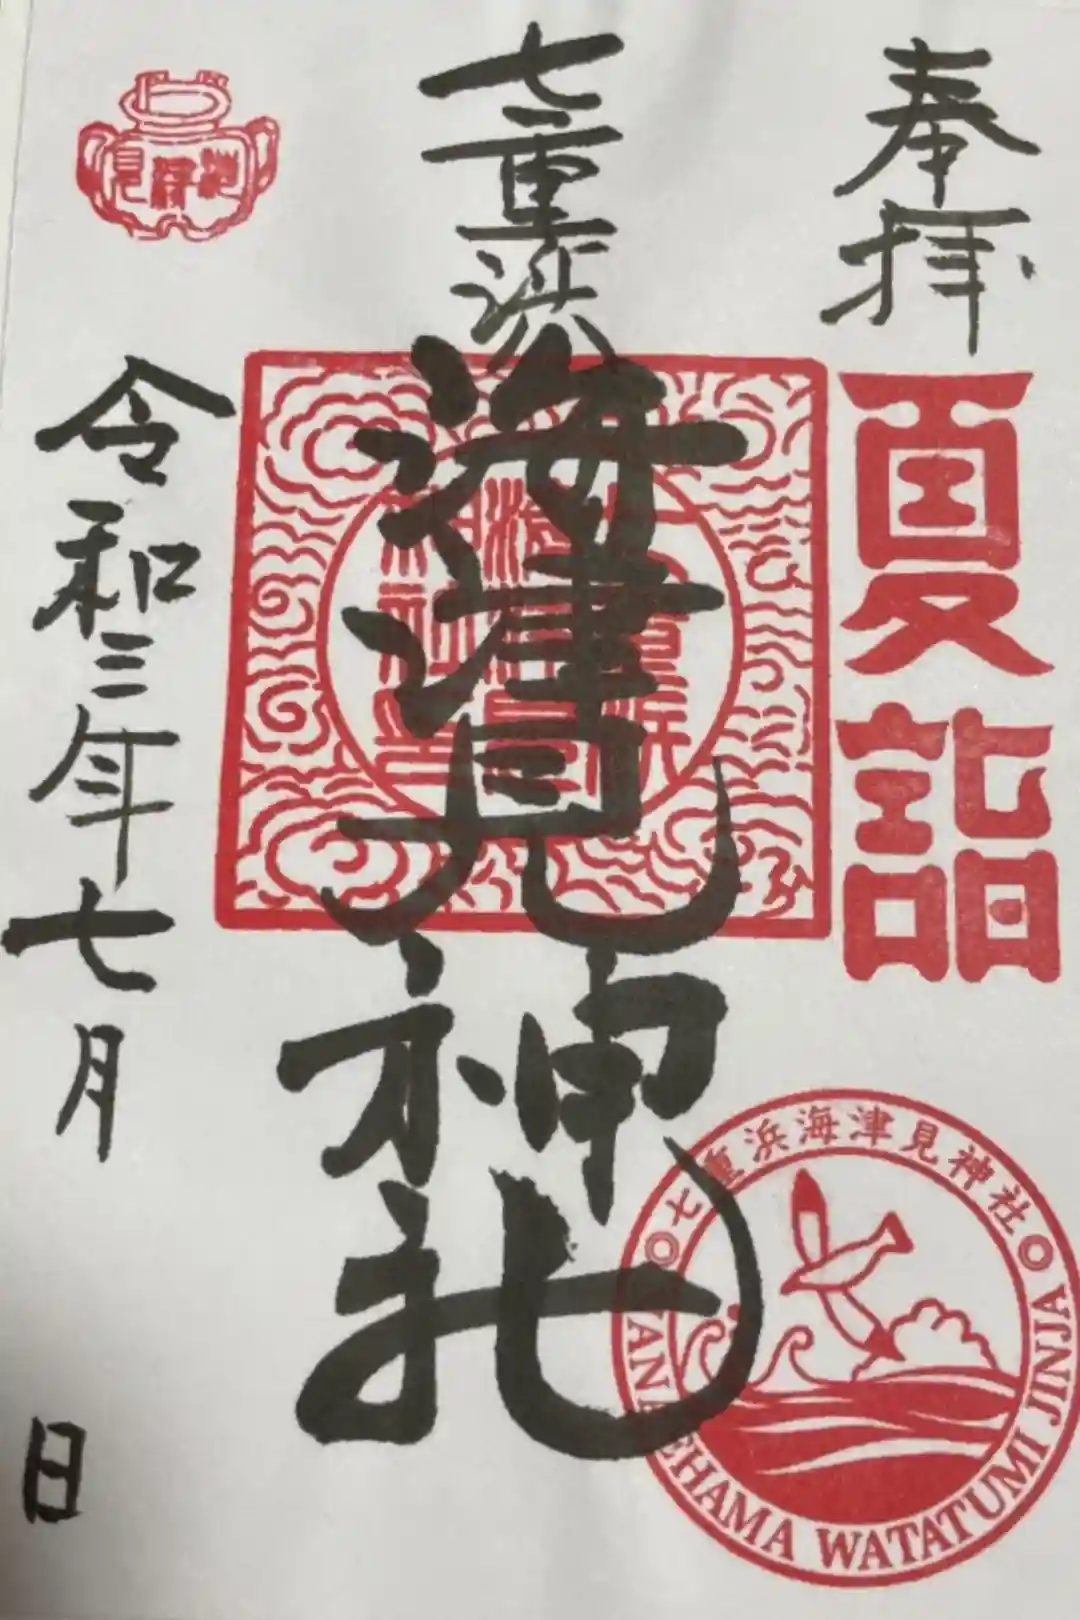 奉拝
夏詣
七重浜
海津見神社
令和三年七月
日
海津見
七重浜海津見神社
NANAEHAMA WATATUMI JINJA